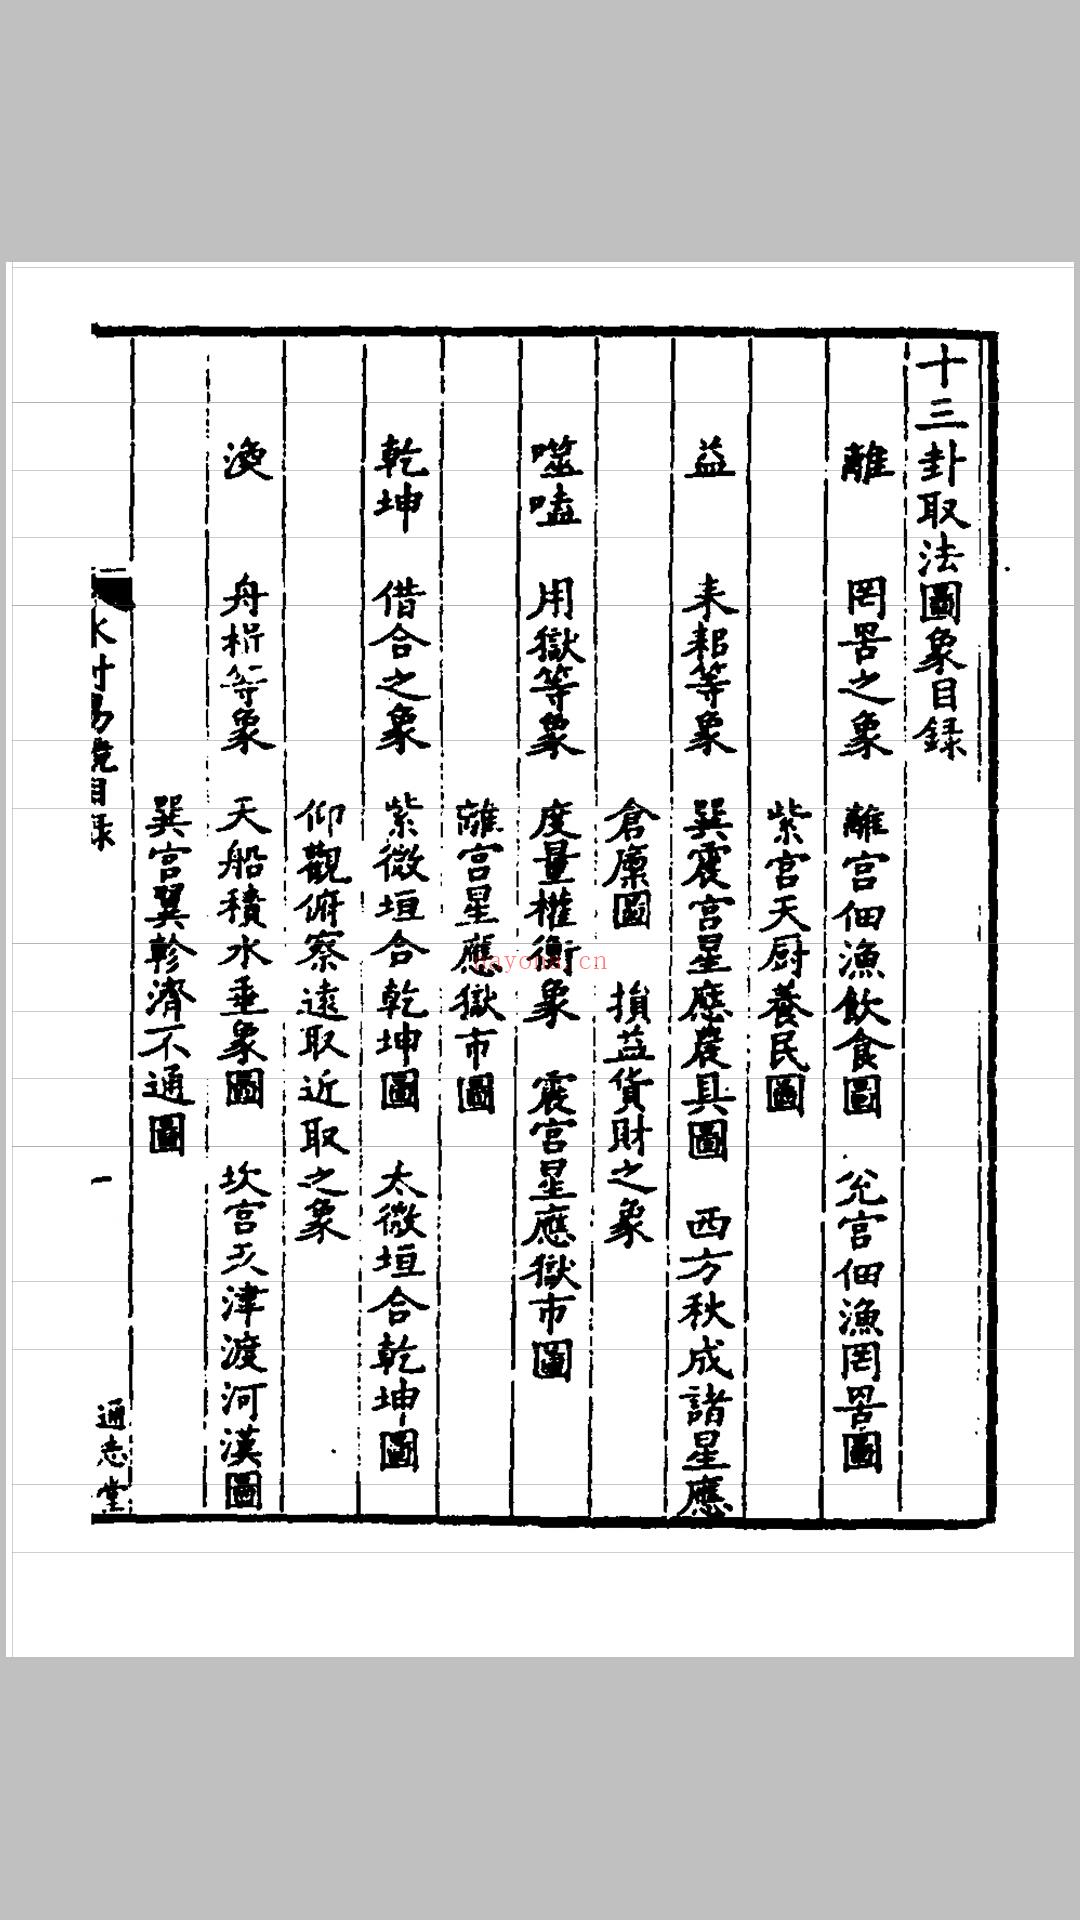 十三卦取法圖象目録
離 罔罟之象 離宮佃漁飲食圖 兊宮佃漁罔罟圖
紫宮天厨養民圖
益 耒耜等象 巽震宮星應農具圖 西方秋成諸星應
倉廩圖 損益貨財之象
噬嗑 用獄等象 度量權衡象 震宮星應獄市圖
離宮星應獄市圖
乾坤 借合之象 紫微垣合乾坤圖 太微垣合乾坤圖
仰觀俯察遠取近取之象
渙 舟楫等象 天船積水垂象圖 坎宮天津渡河漢圖
巽宮翼軫濟不通圖
水村易鏡目録 一 通志堂
nayona.cn